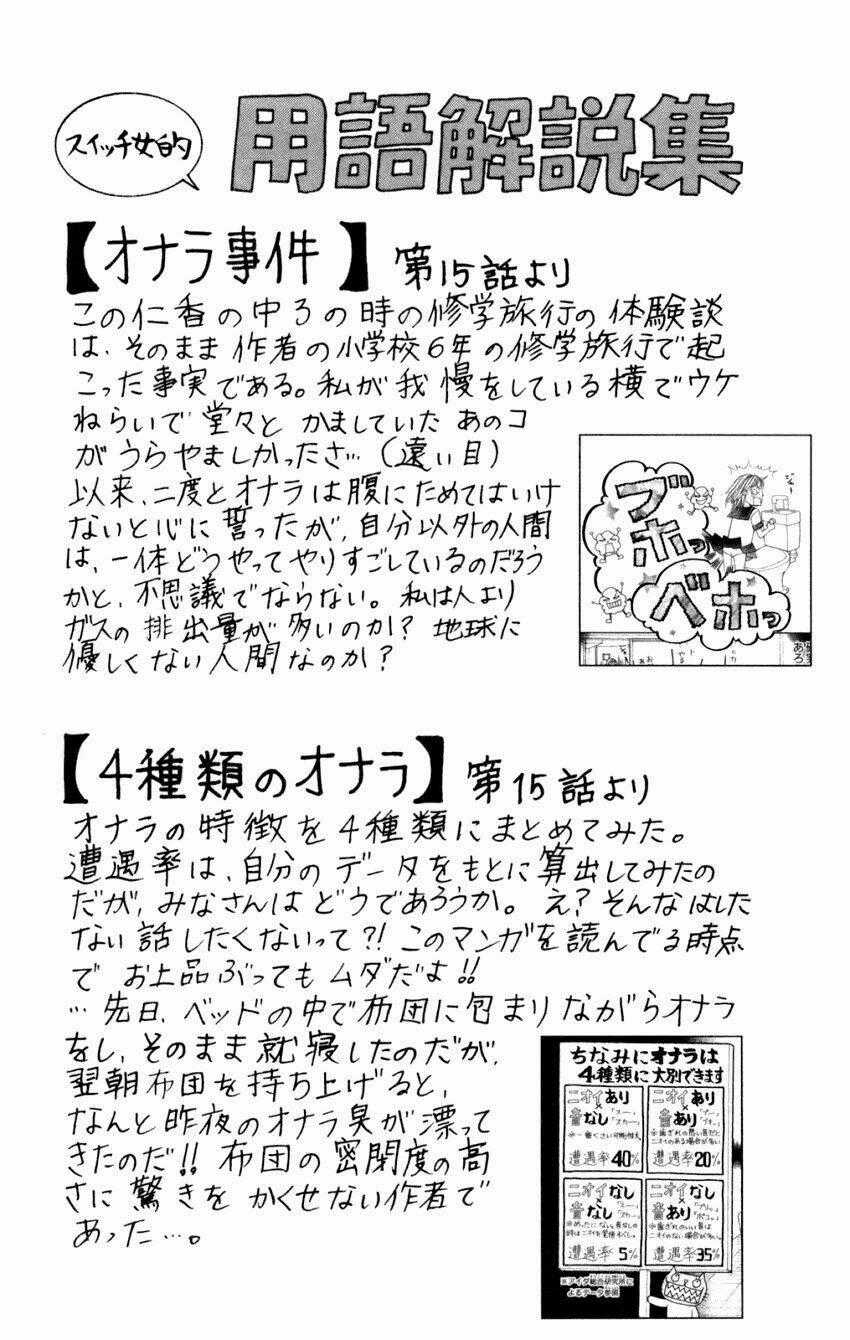 スイッチ女的
用語解説集
【オナラ事件】第15話より
この仁香の中3の時の修学旅行の体験談
は、そのまま作者の小学校6年の修学旅行で起
こった事実である。私が我慢をしている横でウケ
ねらいで堂々とかましていたあのコ
がうらやましかったさ…(遠い目)
以来、二度とオナラは腹にためてはいけ
ないと心に誓ったが、自分以外の人間
は、一体どうやってやりすごしているのだろう
かと、不思議でならない。私は人より
ガスの排出量が多いのか?地球に
優しくない人間なのか?
ブホッ
ベホッ
【4種類のオナラ】第15話より
オナラの特徴を4種類にまとめてみた。
遭遇率は、自分のデータをもとに算出してみたの
だが、みなさんはどうであろうか。え?そんなはした
ない話したくないって?!このマンガを読んでる時点
でお上品ぶってもムダだよ!!
…先日、ベッドの中で布団に包まりながらオナラ
をし、そのまま就寝したのだが、
翌朝布団を持ち上げると、
なんと昨夜のオナラ臭が漂って
きたのだ!!布団の密閉度の高
さに驚きをかくせない作者で
あった…。
ちなみにオナラは
4種類に大別できます
ニオイあり
×
音なし
遭遇率40%
ニオイあり
×
音あり
遭遇率20%
ニオイなし
×
音なし
遭遇率5%
ニオイなし
×
音あり
遭遇率35%
よるデータ参照